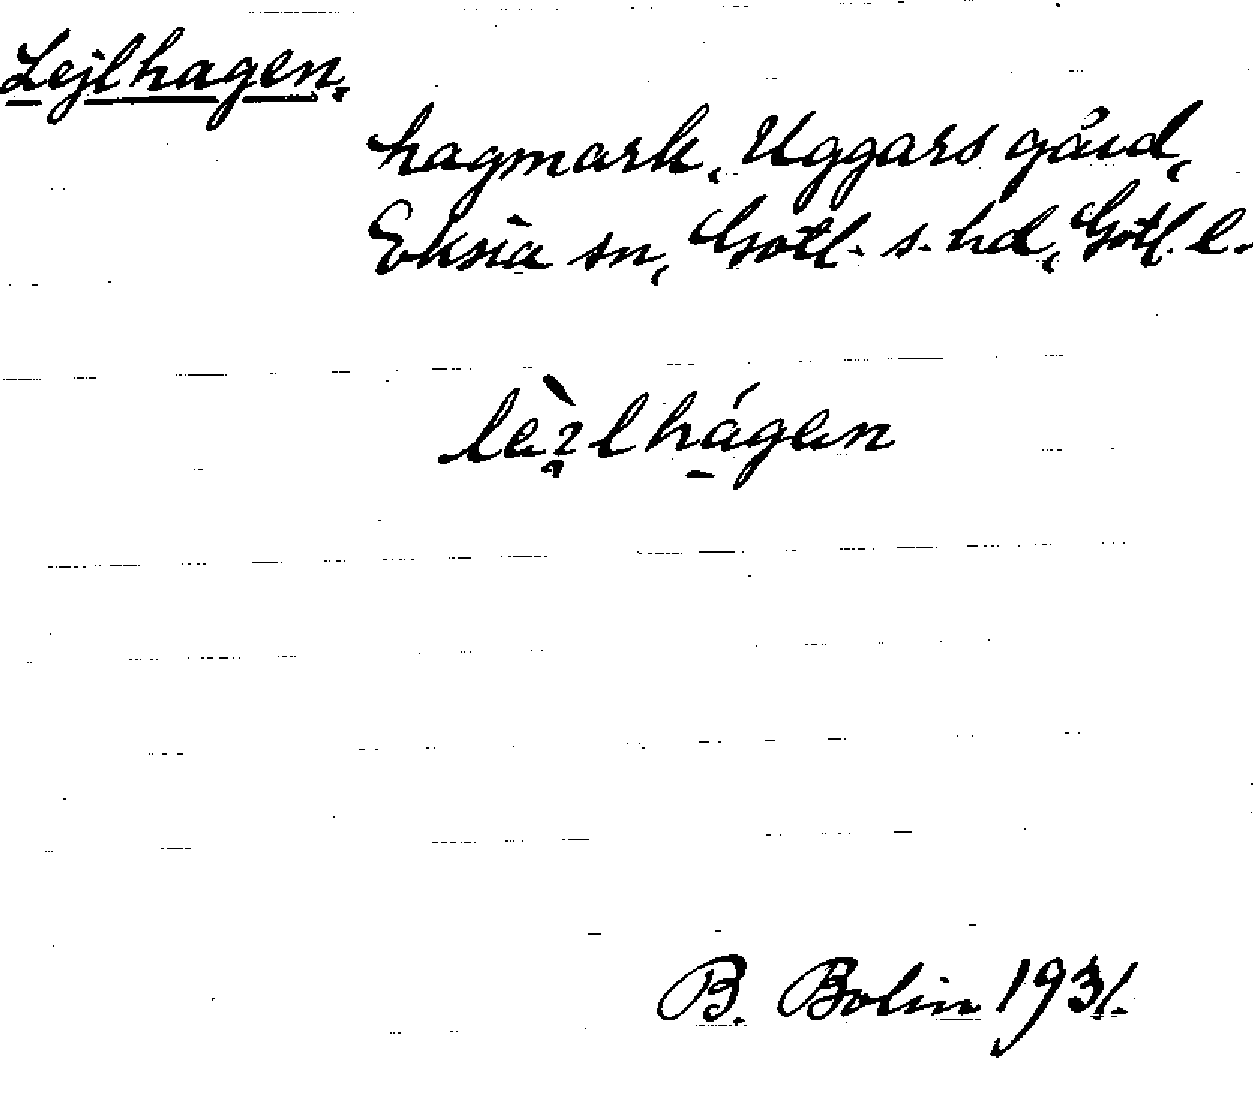 Lejlhagen.
hagmark, Uggars gård,
Eksta sn, Gotl. s. hd, Gotl. l.
B. Bolin 1931.